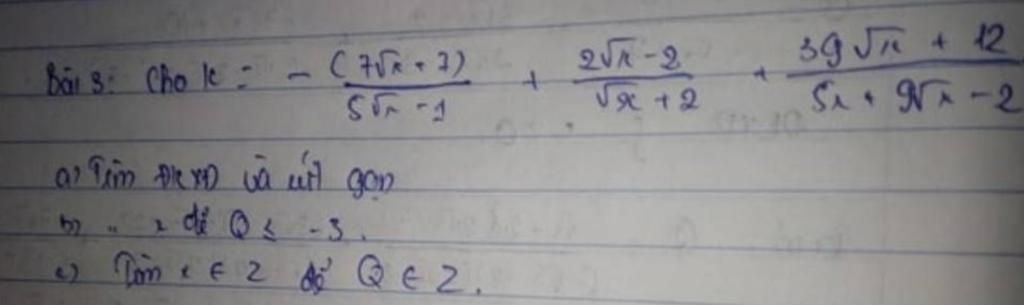 Bài 3: Cho K = - (7√x + 7) / (5√x - 1) + (2√x - 2) / (√x + 2) + (39√x + 12) / (5x + 9√x - 2)
a) Tìm ĐKXĐ và rút gọn
b) " x để Q ≤ -3.
c) Tìm x ∈ Z để Q ∈ Z.